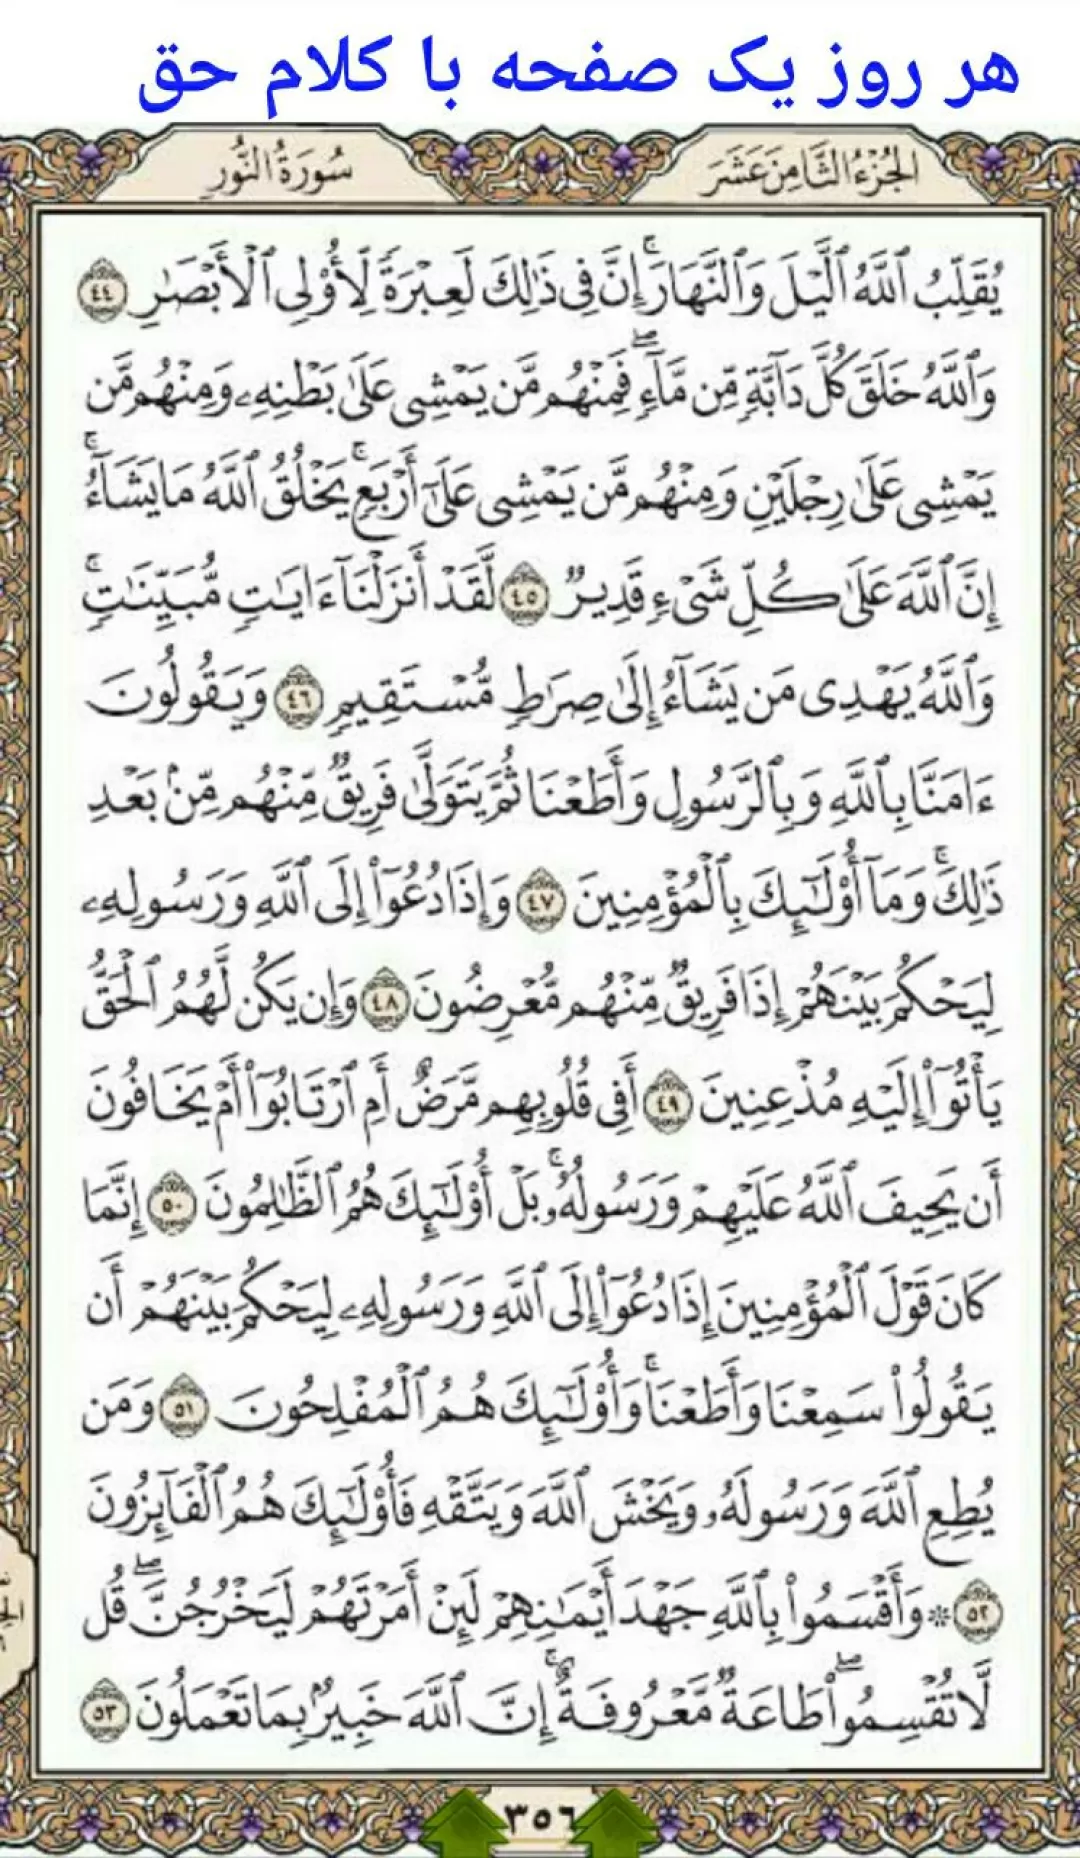 هر روز یک صفحه با کلام حق
الجُزْءُ الثَّامِنَ عَشَرَ
سُورَةُ النُّورِ
يُقَلِّبُ ٱللَّهُ ٱلَّيْلَ وَٱلنَّهَارَۚ إِنَّ فِى ذَٰلِكَ لَعِبْرَةً لِّأُو۟لِى ٱلْأَبْصَـٰرِ ٤٤
وَٱللَّهُ خَلَقَ كُلَّ دَآبَّةٍ مِّن مَّآءٍۖ فَمِنْهُم مَّن يَمْشِى عَلَىٰ بَطْنِهِۦ وَمِنْهُم مَّن
يَمْشِى عَلَىٰ رِجْلَيْنِ وَمِنْهُم مَّن يَمْشِى عَلَىٰٓ أَرْبَعٍۚ يَخْلُقُ ٱللَّهُ مَا يَشَآءُۚ
إِنَّ ٱللَّهَ عَلَىٰ كُلِّ شَىْءٍ قَدِيرٌ ٤٥ لَّقَدْ أَنزَلْنَآ ءَايَـٰتٍ مُّبَيِّنَـٰتٍۚ
وَٱللَّهُ يَهْدِى مَن يَشَآءُ إِلَىٰ صِرَٰطٍ مُّسْتَقِيمٍ ٤٦ وَيَقُولُونَ
ءَامَنَّا بِٱللَّهِ وَبِٱلرَّسُولِ وَأَطَعْنَا ثُمَّ يَتَوَلَّىٰ فَرِيقٌ مِّنْهُم مِّنۢ بَعْدِ
ذَٰلِكَۚ وَمَآ أُو۟لَـٰٓئِكَ بِٱلْمُؤْمِنِينَ ٤٧ وَإِذَا دُعُوٓا۟ إِلَى ٱللَّهِ وَرَسُولِهِۦ
لِيَحْكُمَ بَيْنَهُمْ إِذَا فَرِيقٌ مِّنْهُم مُّعْرِضُونَ ٤٨ وَإِن يَكُن لَّهُمُ ٱلْحَقُّ
يَأْتُوٓا۟ إِلَيْهِ مُذْعِنِينَ ٤٩ أَفِى قُلُوبِهِم مَّرَضٌ أَمِ ٱرْتَابُوٓا۟ أَمْ يَخَافُونَ
أَن يَحِيفَ ٱللَّهُ عَلَيْهِمْ وَرَسُولُهُۥۚ بَلْ أُو۟لَـٰٓئِكَ هُمُ ٱلظَّـٰلِمُونَ ٥٠ إِنَّمَا
كَانَ قَوْلَ ٱلْمُؤْمِنِينَ إِذَا دُعُوٓا۟ إِلَى ٱللَّهِ وَرَسُولِهِۦ لِيَحْكُمَ بَيْنَهُمْ أَن
يَقُولُوا۟ سَمِعْنَا وَأَطَعْنَاۚ وَأُو۟لَـٰٓئِكَ هُمُ ٱلْمُفْلِحُونَ ٥١ وَمَن
يُطِعِ ٱللَّهَ وَرَسُولَهُۥ وَيَخْشَ ٱللَّهَ وَيَتَّقْهِ فَأُو۟لَـٰٓئِكَ هُمُ ٱلْفَآئِزُونَ
٥٢ * وَأَقْسَمُوا۟ بِٱللَّهِ جَهْدَ أَيْمَـٰنِهِمْ لَئِنْ أَمَرْتَهُمْ لَيَخْرُجُنَّۖ قُل
لَّا تُقْسِمُوا۟ۖ طَاعَةٌ مَّعْرُوفَةٌۚ إِنَّ ٱللَّهَ خَبِيرٌۢ بِمَا تَعْمَلُونَ ٥٣
٣٥٦